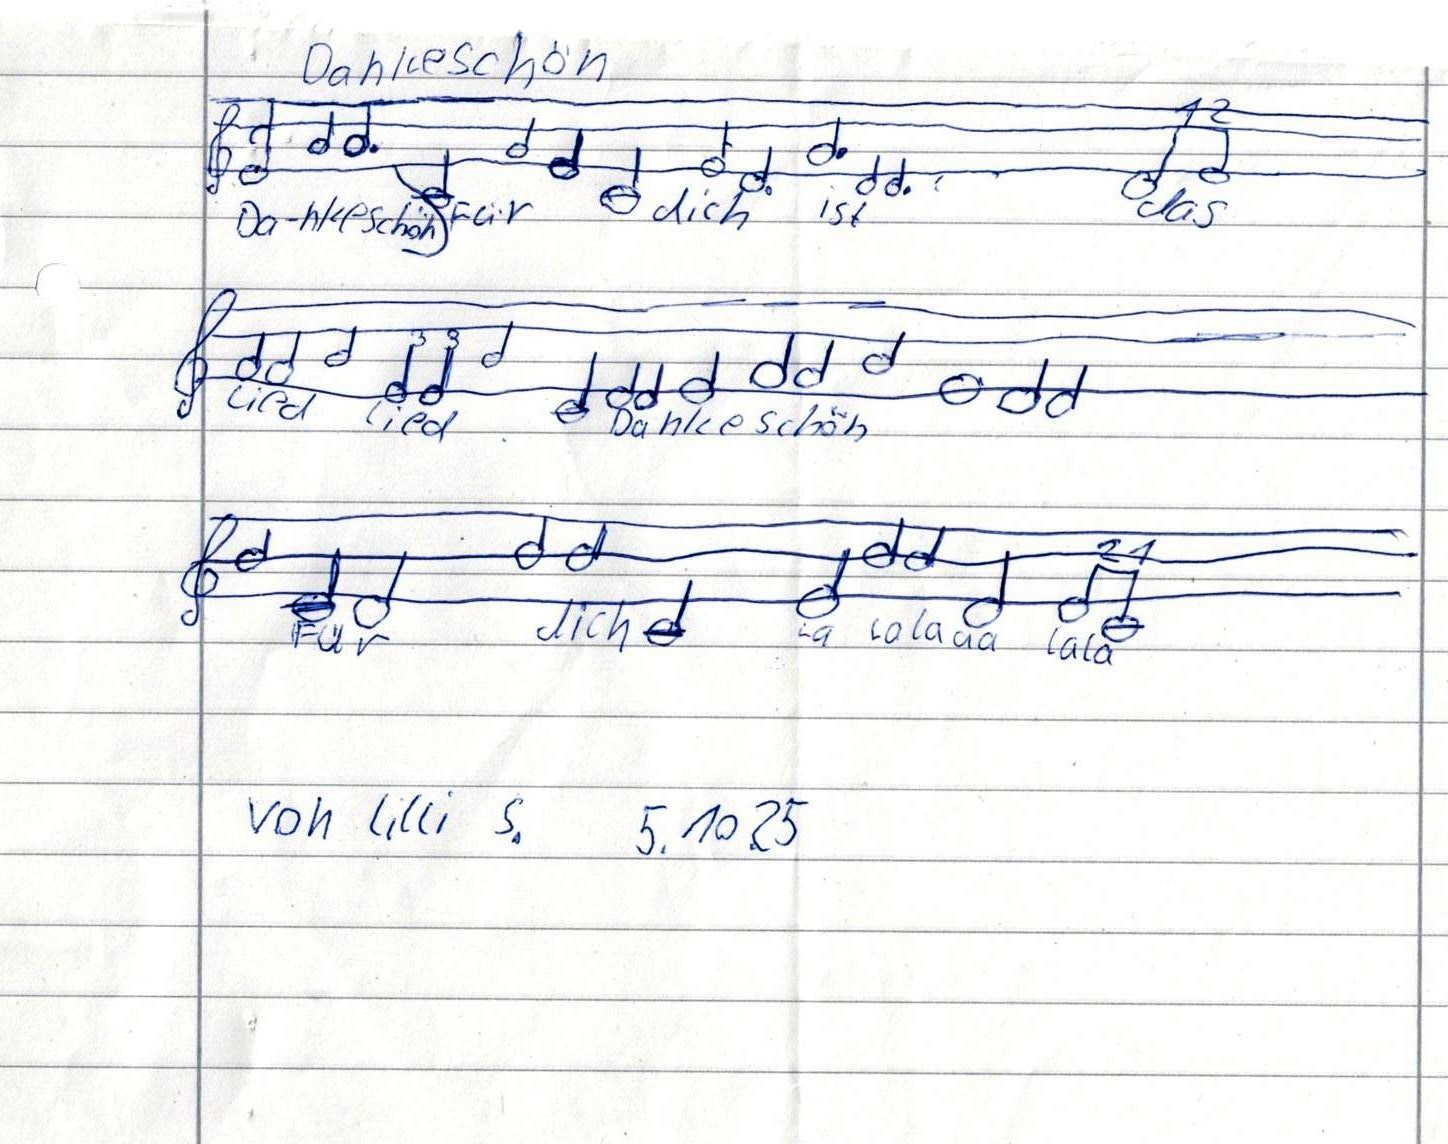 Dankeschön
1 2
Da-nkeschön Für dich ist das
3 3
Lied Lied Dankeschön
2 1
Für dich La Lalaaa lala
von lilli S. 5.10.25